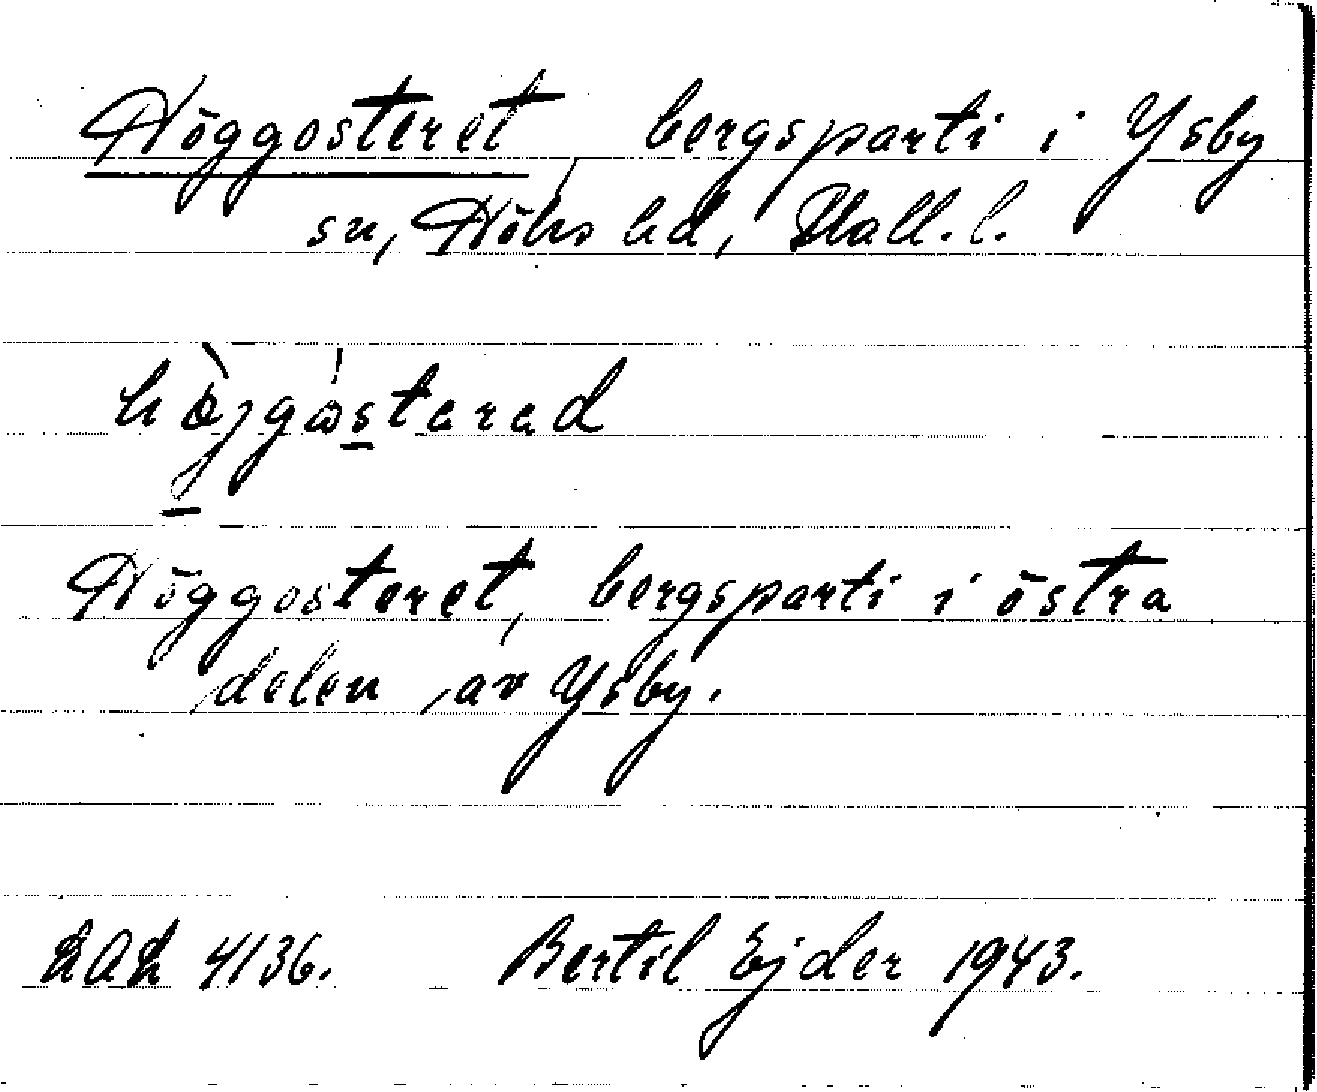 Höggosteret, bergsparti i Ysby
sn, Höks hd, Hall. l.
Höggosteret, bergsparti i östra
delen av Ysby.
LAL 4136. Bertil Ejder 1943.